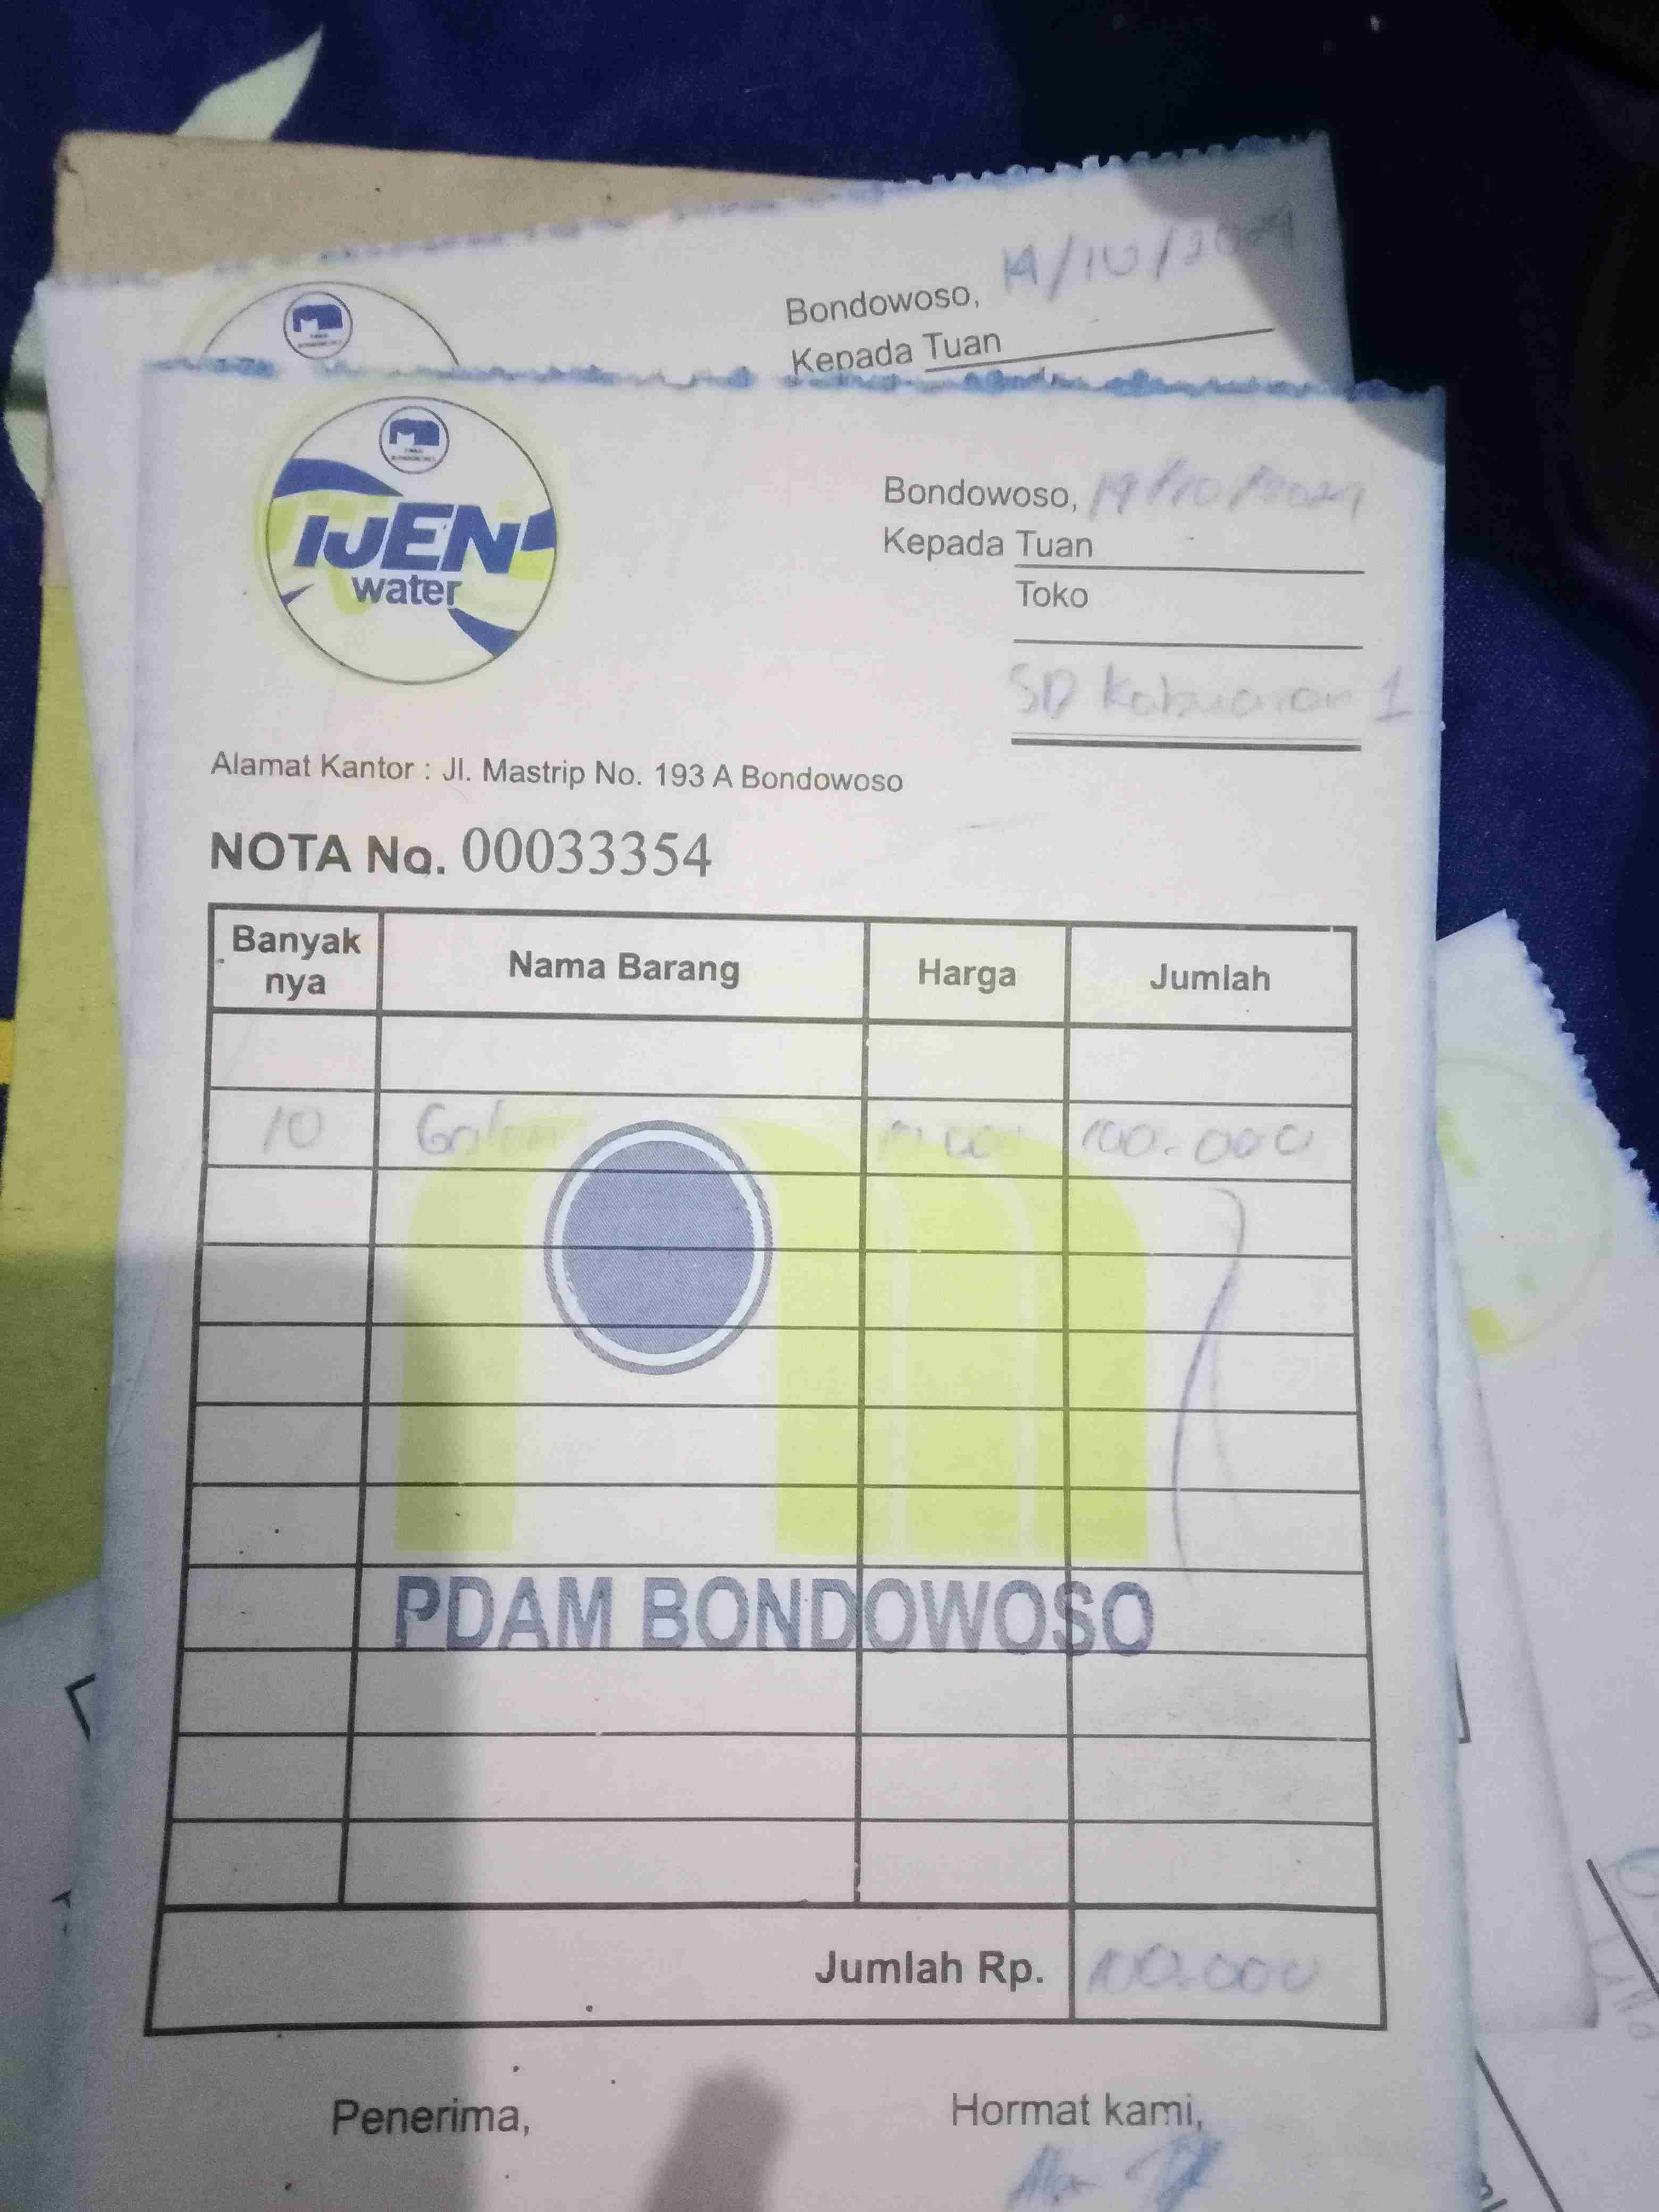 Bondowoso, 14/10/2024
Kepada Tuan
IJEN
water
Bondowoso, 19/10/2024
Kepada Tuan
Toko
SD Kabuaran 1
Alamat Kantor : Jl. Mastrip No. 193 A Bondowoso
NOTA No. 00033354
Banyak nya Nama Barang Harga Jumlah
10 Galon 100.000
PDAM BONDOWOSO
Jumlah Rp. 100.000
Penerima, Hormat kami,